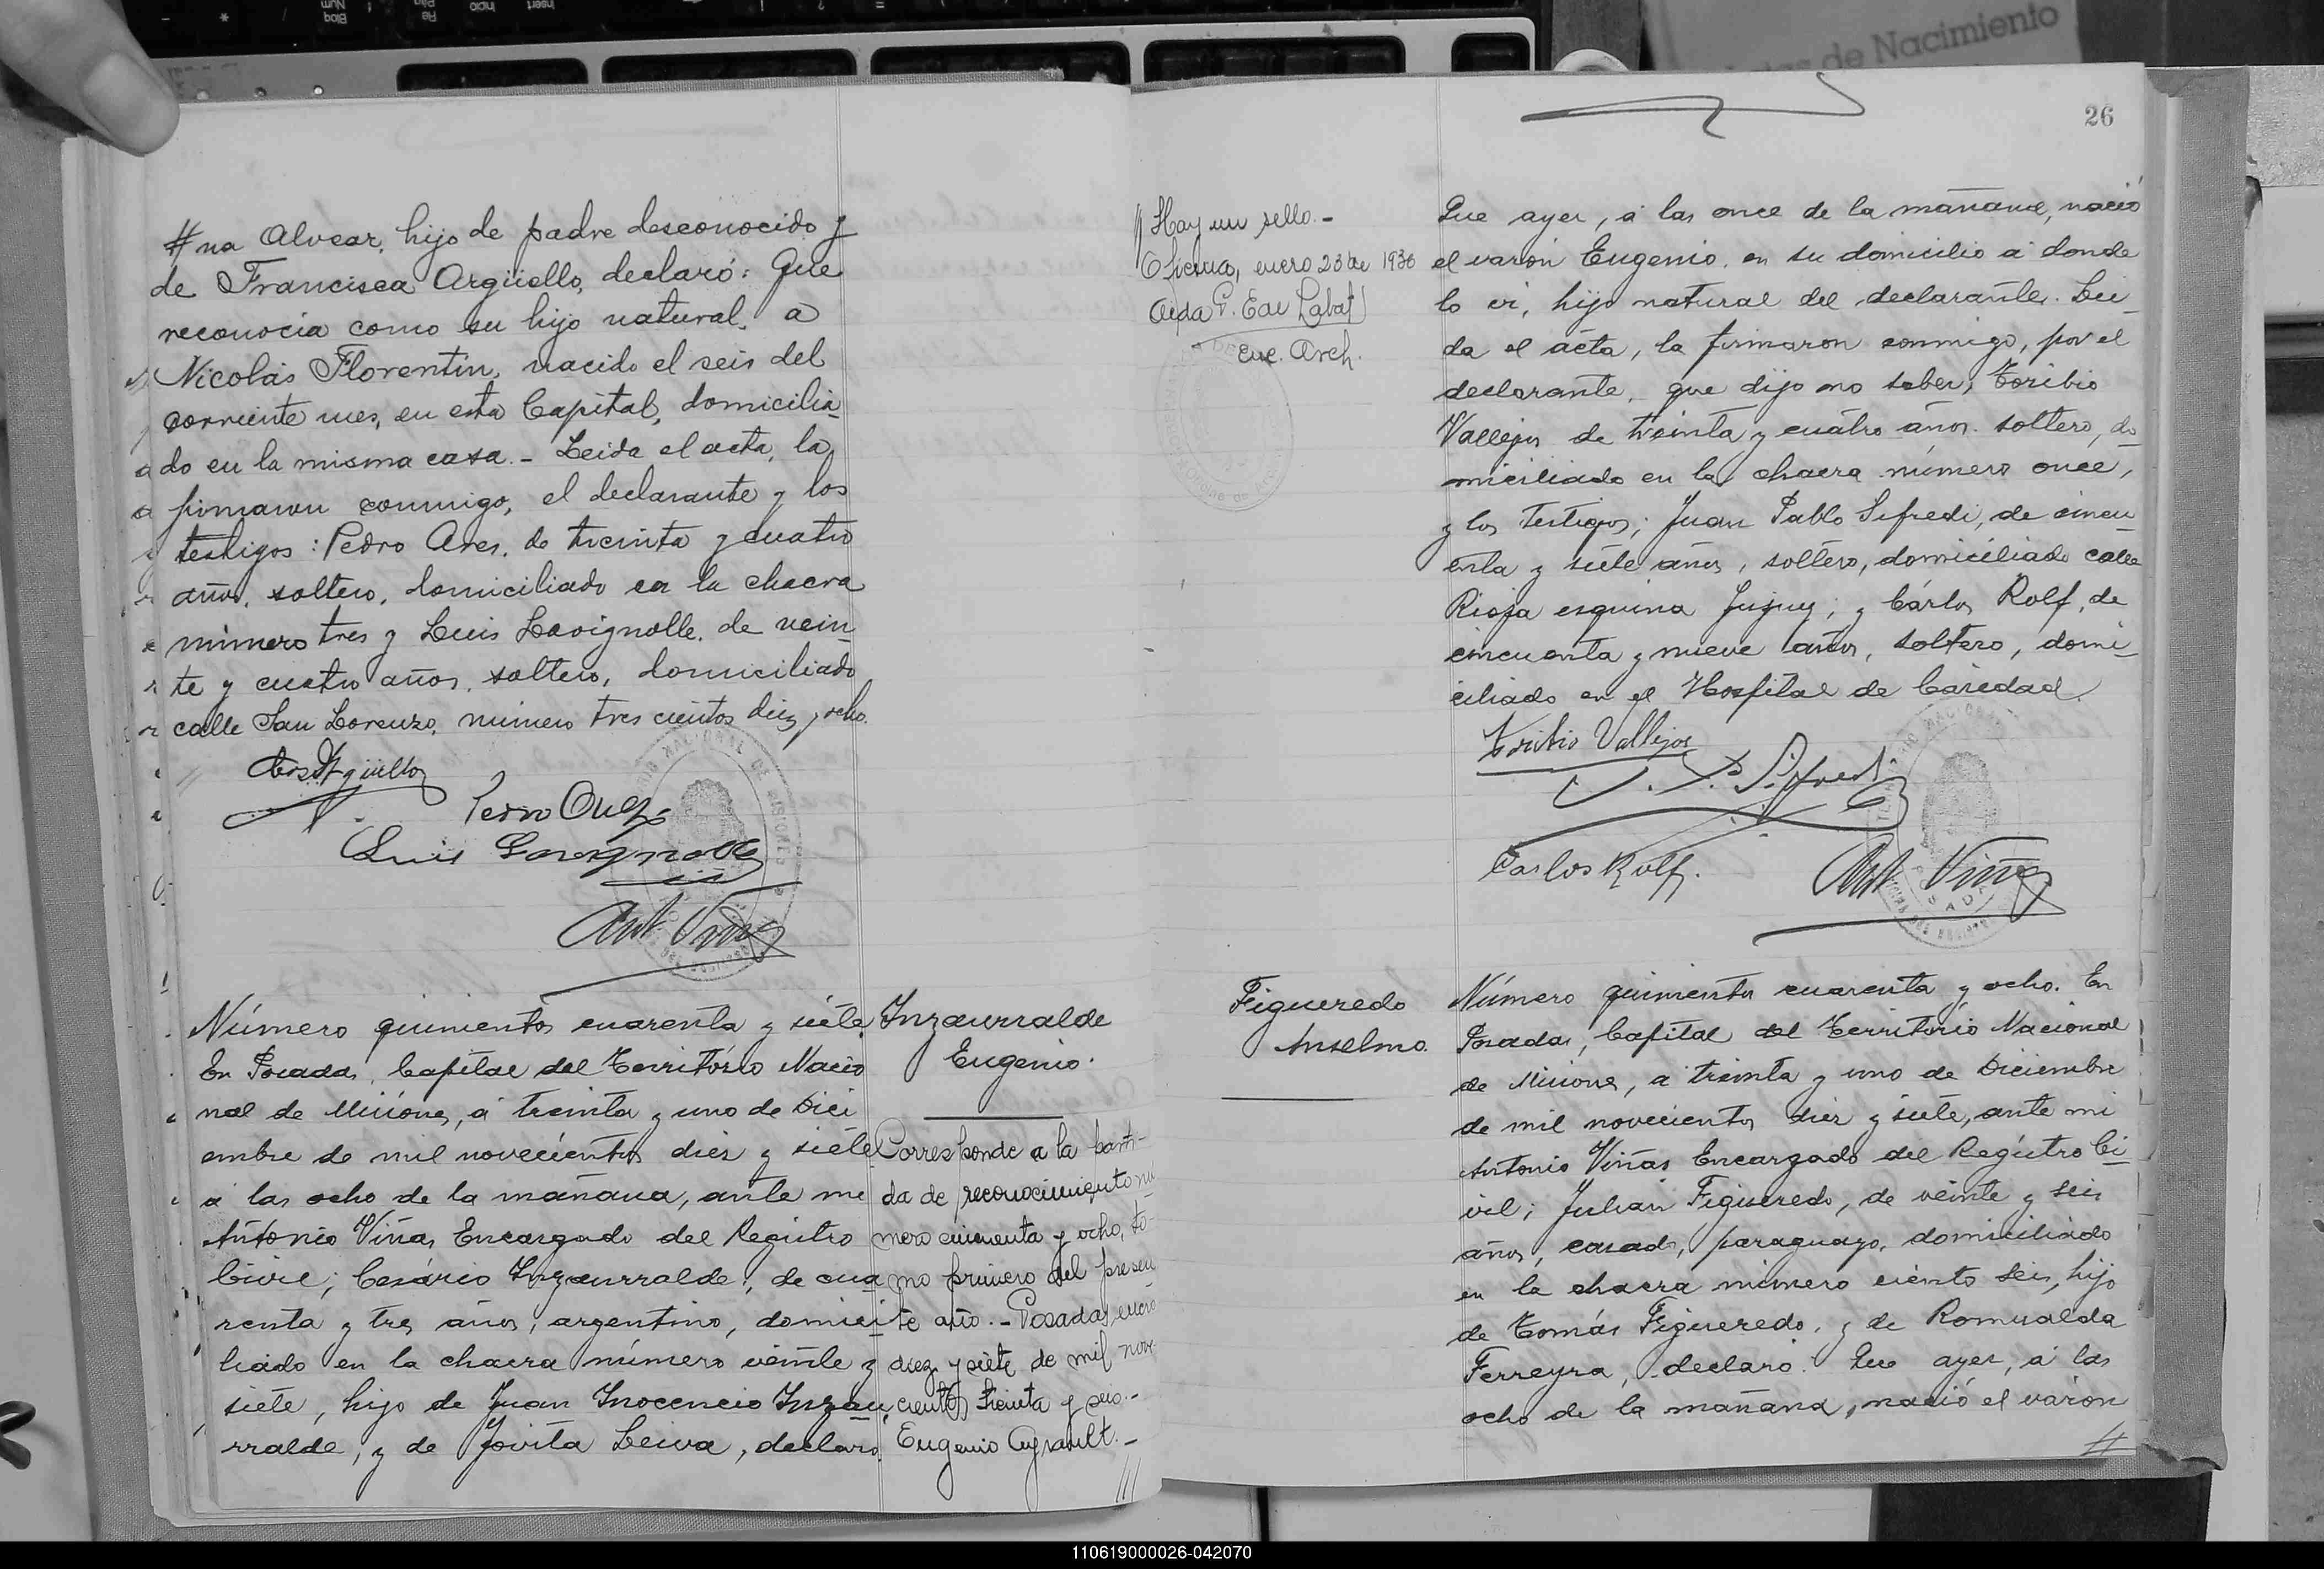 # na Alvear, hijo de padre desconocido y
de Francisca Argüello, declaró: Que
reconocía como su hijo natural, a
Nicolás Florentin, nacido el seis del
corriente mes, en esta Capital, domicilia
do en la misma casa.- Leida el acta, la
firmaron conmigo, el declarante y los
testigos: Pedro Ares, de treinta y cuatro
años, soltero, domiciliado en la chacra
número tres y Luis Lavignolle, de vein
te y cuatro años, soltero, domiciliado
calle San Lorenzo, número tres cientos diez y ocho.
Luis Lavignolle
Ant Viñas
Número quinientos cuarenta y siete
En Posadas, Capital del Territorio Nacio
nal de Misiones, á treinta y uno de Dici
embre de mil novecientos diez y siete
á las ocho de la mañana, ante me
Antonio Viñas Encargado del Registro
Civil; Cesáreo Inzaurralde, de cua
renta y tres años, argentino, domici
liado en la chacra número veinte y
siete, hijo de Juan Inocencio Inzau
rralde, y de Jovita Leiva, declaro.
Inzaurralde
Eugenio.
Corresponde a la parti-
da de reconocimiento nu
mero cincuenta y ocho, to-
mo primero del presen
te año.- Posadas, enero
diez y siete de mil nove
cientos treinta y seis.-
Eugenio Ayrault.-
26
Hay un sello.-
Oficina, enero 23 de 1936
Aida G. Labat
enc. Arch.
Que ayer, á las once de la mañana, nació
el varón Eugenio, en su domicilio á donde
lo vi, hijo natural del declarante. Lei
da el acta, la firmaron conmigo, por el
declarante, que dijo no saber, Toribio
Vallejos de treinta y cuatro años. soltero, do
miciliado en la chacra número once,
y los testigos; Juan Pablo Sifredi, de cincu
enta y siete años, soltero, domiciliado calle
Rioja esquina Jujuy; y Cárlos Rolf, de
cincuenta y nueve años, soltero, domi
ciliado en el Hospital de Caridad.
Toribio Vallejos
J. P. Sifredi
Carlos Rolf.
Ant Viñas
Figueredo
Anselmo.
Número quinientos cuarenta y ocho. En
Posadas, Capital del Territorio Nacional
de Misiones, a treinta y uno de Diciembre
de mil novecientos diez y siete, ante mi
Antonio Viñas Encargado del Registro Ci
vil; Julian Figueredo, de veinte y seis
años, casado, paraguayo, domiciliado
en la chacra número ciento seis, hijo
de Tomás Figueredo, y de Romualda
Ferreyra, declaro: Que ayer, á las
ocho de la mañana, nació el varón
#
110619000026-042070